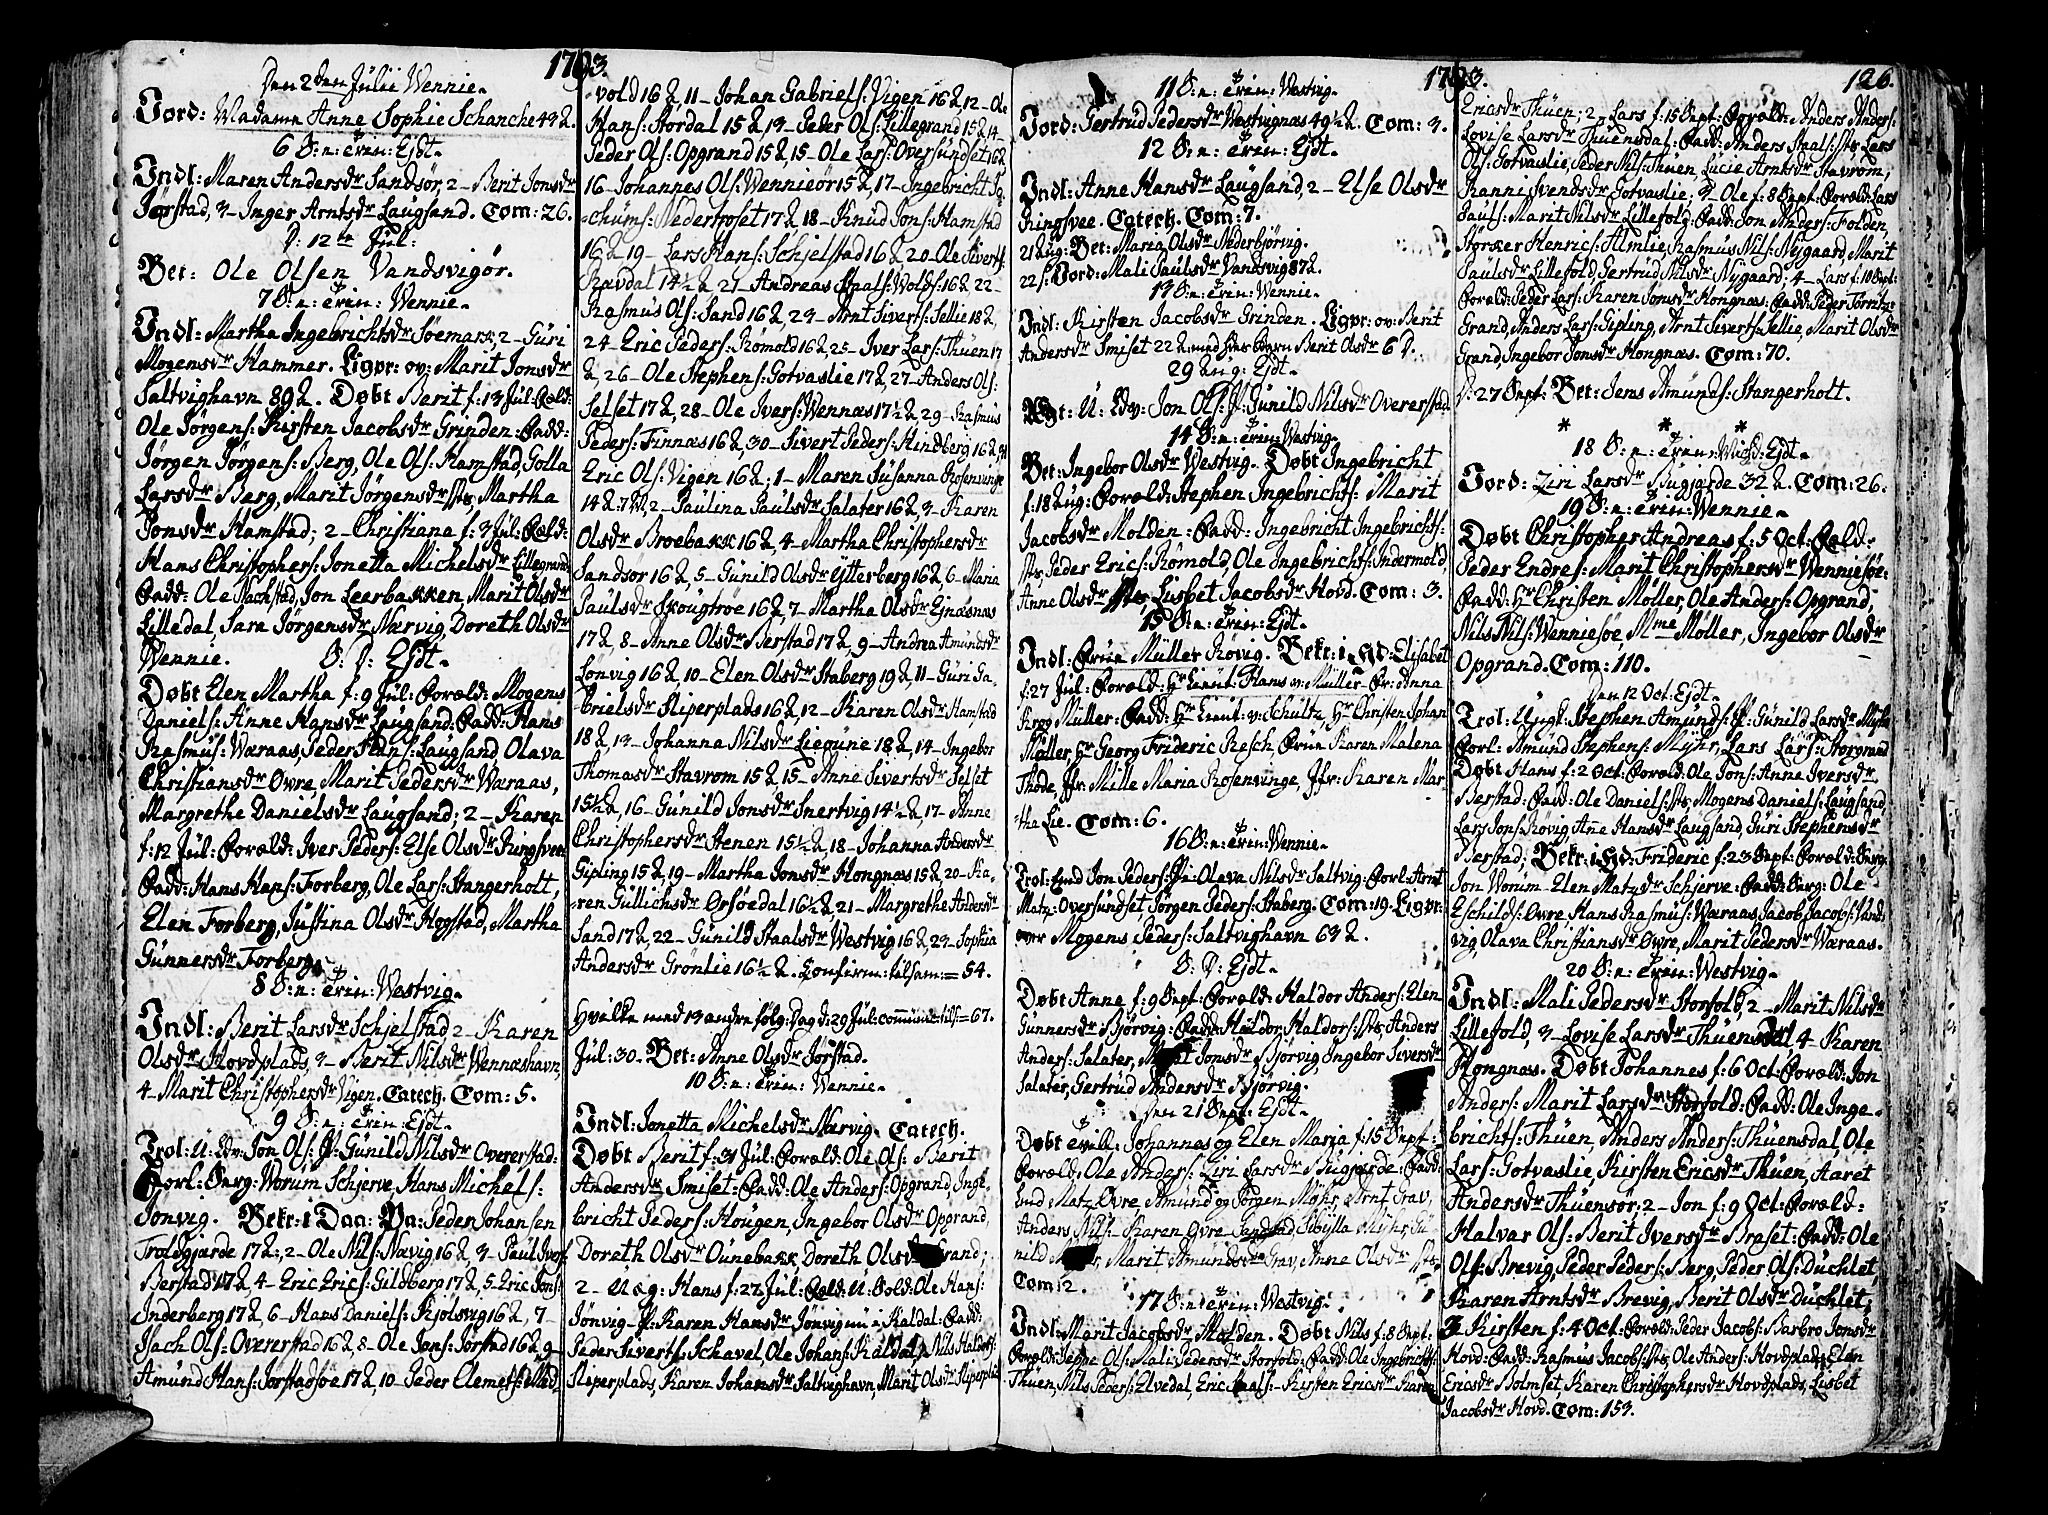 1793.
Den 2den Julii Wennie.
Jord: Madame Anne Sophie Schanche 43 2.
6 S: n: Trin: Ejdt.
Indl: Maren Andersdr Sandsør, 2 - Berit Jonsdr
Jørstad, 3 - Inger Arntsdr Laugsand. Com: 26.
D: 12te Jul:
Bet: Ole Olsen Vandsvigør.
7 S: n: Trin: Wennie.
Indl: Martha Ingebrichtsdr Søemark, 2 - Guri
Mogensdr Hammer. Ligpr: ov: Marit Jonsdr
Saltvighavn 89 2. Døbt Berit f: 13 Jul: Foræld:
Ole Jørgens: Kirsten Jacobsdr Grinden: Fadd:
Jørgen Jørgens: Berg, Ole Ols: Hamstad, Golla
Larsdr Berg, Marit Jørgensdr sts, Martha
Jonsdr Hamstad; 2 - Christiana f: 3 Jul: Foræld:
Hans Christophers: Jonetta Michelsdr Lillegrund
Fadd: Ole Nachstad, Jon Leerbakken, Marit Olsdr
Lilledal, Sara Jørgensdr Nærvig, Doreth Olsdr
Wennie. S: D: Ejdt.
Døbt Elen Martha f: 9 Jul: Foræld: Mogens
Daniels: Anne Hansdr Laugsand: Fadd: Hans
Rasmus: Wæraas, Peder Hans: Laugsand Olava
Christiansdr Øvre, Marit Pedersdr Wæraas,
Margrethe Danielsdr Laugsand; 2 - Karen
f: 12 Jul: Foræld: Iver Peders: Else Olsdr Ringsvee:
Fadd: Hans Hans: Forberg, Ole Lars: Stangerholt,
Elen Forberg, Justina Olsdr Hogstad, Martha
Gunnersdr Forberg.
8 S: n: Trin: Westvig.
Indl: Berit Larsdr Schjelstad 2 - Karen
Olsdr Hovdplads, 3 - Berit Nilsdr Wennæshavn,
4 - Marit Christophersdr Vigen. Catech. Com: 5.
9 S: n: Trin: Ejdt.
Trol: U: Edv: Jon Ols: P: Gunild Nilsdr Overerstad:
Forl: Serg: Worum Schjerve, Hans Michels:
Jonvig. Bekr: i Daa: Pa: Peder Johansen
Troldgjærde 17 2:, 2 - Ole Nils: Nævig 16 2, 3 - Paul Ivers:
Berstad 17 2, 4 - Eric Erics: Gildberg 17 2, 5 Eric Jons:
Inderberg 17 2, 6 - Hans Daniels: Kjølsvig 16 2, 7 -
Isach Ols: Overerstad 16 2 8 - Ole Jons: Jørstad 16 2, 9 -
Amund Hans: Jørstadsøe 17 2, 10 - Peder Clemets:
vold 16 2, 11 - Johan Gabriels: Vigen 16 2, 12 - Ole
Hans: Stordal 15 2 13 - Peder Ols: Lillegrand 15 2 14 -
Peder Ols: Opgrand 15 2 15 - Ole Lars: Oversundset 16 2
16 - Johannes Ols: Wennieør 15 2, 17 - Ingebricht Jo-
chums: Nedertroset 17 2 18 - Knud Jons: Hamstad
16 2 19 - Lars Hans: Schjelstad 16 2 20 Ole Siverts:
Ravdal 14½ 2 21 - Andreas Staals: Wolds: 16 2 22 -
Rasmus Ols: Sand 16 2, 23 - Arnt Siverts: Sellie 18 2,
24 - Eric Peders: Rømold 16 2 25 - Iver Lars: Thuen 17
2, 26 - Ole Stephens: Gotvaslie 17 2, 27 - Anders Ols:
Selset 17 2, 28 - Ole Ivers: Wennæs 17½ 2 29 - Rasmus
Peders: Finnæs 16 2, 30 - Sivert Peders: Hindberg 16 2, 31
Eric Ols: Vigen 16 2; 1 - Maren Susanna Rosenvinge
14 2: 7 M, 2 - Paulina Paulsdr Salater 16 2 3 - Karen
Olsdr Broebakk 16 2, 4 - Martha Christophersdr
Sandsør 16 2, 5 - Gunild Olsdr Ytterberg 16 2 6 - Maria
Paulsdr Skougtrøe 16 2, 7 - Martha Olsdr Ejnæsnæs
17 2, 8 - Anne Olsdr Berstad 17 2, 9 - Andrea Amundsdr
Lonvig 16 2, 10 - Elen Olsdr Staberg 19 2, 11 - Guri Ga-
brielsdr Sliperplads 16 2, 12 - Karen Olsdr Hamstad
18 2, 13 - Johanna Nilsdr Lieoune 18 2, 14 - Ingebor
Thomasdr Stavrom 15 2 15 - Anne Sivertsdr Selset
15½ 2, 16 - Gunild Jonsdr Snertvig 14½ 2, 17 - Anne
Christophersdr Stenen 15½ 2 18 - Johanna Andersdr
Gipling 15 2, 19 - Martha Jonsdr Hongnæs 15 2 20 - Ka-
ren Gullichsdr Ørsøedal 16½ 2, 21 - Margrethe Andersdr
Sand 17 2, 22 - Gunild Staalsdr Westvig 16 2, 23 - Sophia
Andersdr Grønlie 16½ 2. Confirm: tilsam: = 54.
Hvilke med 13 andre følg: Dag d: 29 Jul: commun: tils: = 67.
Jul: 30 - Bet: Anne Olsdr Jørstad.
10 S: n: Trin: Wennie.
Indl: Jonetta Michelsdr Nærvig. Catech.
Døbt Berit f: 31 Jul: Foræld: Ole Ols: Berit
Andersdr Smiset: Fadd: Ole Anders: Opgrand, Inge
bricht Peders: Hougen, Ingebor Olsdr Opgrand,
Doreth Olsdr Ounebakk, Doreth Olsdr grand;
2 - Uæg: Hans f: 22 Jul: Foræld: U: Sold: Ole Hans:
Jønvig P: Karen Hansdr Jønvig nu i Kaldal: Fadd:
Peder Siverts: Schavel, Ole Johans: Kaldal, Nils Haldors:
Sliperplads, Karen Johansdr Saltvighavn, Marit Olsdr Sliperpla:
1793.
126.
11 S: n: Trin: Westvig.
Jord: Gertrud Pedersdr Westvignæs 49½ 2. Com: 3.
12 S: n: Trin: Ejdt.
Indl: Anne Hansdr Laugsand, 2 - Else Olsdr
Ringsvee. Catech. Com: 7.
21 Aug: Bet: Maria Olsdr Nederbjørvig.
22 s: Jord: Mali Paulsdr Vandsvig 87 2.
13 S: n: Trin: Wennie.
Indl: Kirsten Jacobsdr Grinden. Ligpr: ov: Berit
Andersdr Smiset 22 2 med hendes Barn Berit Olsdr 6 D.
29 Aug: Ejdt.
U: Edv: Jon Ols: P: Gunild Nilsdr Overerstad
14 S: n: Trin: Westvig.
Bet: Ingebor Olsdr Westvig. Døbt Ingebricht
f: 18 Aug: Foræld: Stephen Ingebrichts: Marit
Jacobsdr Molden: Fadd: Ingebricht Ingebrichts:
sts, Peder Erics: Rømold, Ole Ingebrichts: Indermold,
Anne Olsdr sts, Lisbet Jacobsdr Hovd. Com: 3.
15 S: n: Trin: Ejdt.
Indl: Frue Müller Røvig. Bekr: i Hd: Elisabet
f: 27 Jul: Foræld: Hr Lieut: Hans v: Müller Fr: Anna
Krog Müller: Fadd: Hr Lieut: v: Schultz, Hr Christen Johan
Møller, Hr Georg Frideric Resch, Frue Karen Malena
Thode, Jfr: Mille Maria Rosenvinge, Jfr: Karen Mar-
tha Lie. Com: 6.
16 S: n: Trin: Wennie.
Trol: Jon Peders: Pi: Oleva Nilsdr Saltvig: Forl: Arnt
Matz: Oversundset Jørgen Peders: Staberg. Com: 19. Ligpr:
over Mogens Peders: Saltvighavn 63 2.
S: D: Ejdt.
Døbt Anne f: 9 Sept: Foræld: Haldor Anders: Elen
Gunnersdr Bjørvig: Fadd: Haldor Haldors: sts, Anders
Anders: Salater, Jonsdr Bjørvig, Ingebor Siversdr
Salater, Gertrud Andersdr Bjørvig.
Den 21 Sept: Ejdt.
Døbt Tvill: Johannes og Elen Maria f: 15 Sept:
Foræld: Ole Anders: Ziri Larsdr Bugjærde: Fadd:
Matz Øvre, Amund og Jørgen Mÿhr, Arnt Grav,
Anders Nils: Karen Øvre, Sandstad, Sibylla Mÿhr, Gu-
nild , Marit Amundsdr Grav, Anne Olsdr sts:
Com: 2.
17 S: n: Trin: Westvig.
Indl: Marit Jacobsdr Molden. Døbt Nils f: 8 Sept:
Foræld: Ols: Mali Pedersdr Storfold: Fadd: Ole Ingebrichts:
Thuen, Nils Peders: Elvedal, Eric : Kirsten Ericsdr Karen
Ericsdr Thuen; 2 - Lars f: 15 Sept: Foræld: Anders Anders:
Lovise Larsdr Thuensdal: Fadd: Anders Staals: sts, Lars
Ols: Gotvaslie, Peder Nils: Thuen, Lucie Arntsdr Stavrom,
Ranni Svendsdr Gotvaslie; 3 - Ole f: 8 Sept: Foræld: Lars
Pauls: Marit Nilsdr Lillefold: Fadd: Jon Anders: Folden,
Størker Henrics: Almlie, Rasmus Nils: Nygaard, Marit
Paulsdr Lillefold, Gertrud Nilsdr Nygaard; 4 - Lars f: 18 Sept:
Foræld: Peder Lars: Karen Jonsdr Hongnæs: Fadd: Peder
Grand, Anders Lars: Gipling, Arnt Siverts: Sellie, Marit Olsdr
Grand, Ingebor Jonsdr Hongnæs. Com: 70.
D: 27 Sept: Bet: Jens Amunds: Stangerholt.
* * *
18 S: n: Trin: Mich: Ejdt.
Jord: Ziri Larsdr Bugjærde 32 2. Com: 26.
19 S: n: Trin: Wennie.
Døbt Christopher Andreas f: 5 Oct: Foræld:
Peder Endres: Marit Christophersdr Wenniesøe:
Fadd: Hr Christen Møller, Ole Anders: Opgrand,
Nils Nils: Wenniesøe, Mme Møller, Ingebor Olsdr
Opgrand. Com: 110.
Den 12 Oct: Ejdt.
Trol: Ungk: Stephen Amunds: P: Gunild Larsdr Mÿhr
Forl: Amund Stephens: Mÿhr, Lars Lars: Storgrand
Døbt Hans f: 2 Oct: Foræld: Ole Jons: Anne Iversdr
Berstad: Fadd: Ole Daniels: sts, Mogens Daniels: Laugsand,
Lars Jons: Røvig, Anne Hansdr Laugsand, Guri Stephensdr
Berstad; Bekr: i Hd: Frideric f: 23 Sept: Foræld: Serg:
Jon Worum - Elen Matzdr Schjerve: Fadd: Serg: Ole
Eschilds: Øvre, Hans Rasmus: Wæraas, Jacob Jacobs: Vands
vig, Olava Christiansdr Øvre, Marit Pedersdr Wæraas.
20 S: n: Trin: Westvig.
Indl: Mali Pedersdr Storfold, 2 - Marit Nilsdr
Lillefold, 3 - Lovise Larsdr Thuensdal, 4 - Karen
Hongnæs. Døbt Johannes f: 6 Oct: Foræld: Jon
Anders: Marit Larsdr Storfold: Fadd: Ole Inge-
brichts: Thuen, Anders Anders: Thuensdal, Ole
Lars: Gotvaslie, Kirsten Ericsdr Thuen, Aaret
Andersdr Thuensør; 2 - Jon f: 9 Oct: Foræld:
Halvar Ols: Berit Iversdr Braset: Fadd: Ole
Ols: Brevig, Peder Peders: Berg, Peder Ols: Duchlet,
Karen Arntsdr Brevig, Berit Olsdr Duchlet;
3 Kirsten f: 4 Oct: Foræld: Peder Jacobs: Barbro Jonsdr
Hovd: Fadd: Rasmus Jacobs: sts, Ole Anders: Hovdplads, Elen
Ericsdr Holmset, Karen Christophersdr Hovdplads, Lisbet
Jacobsdr Hovd. Com: 153.